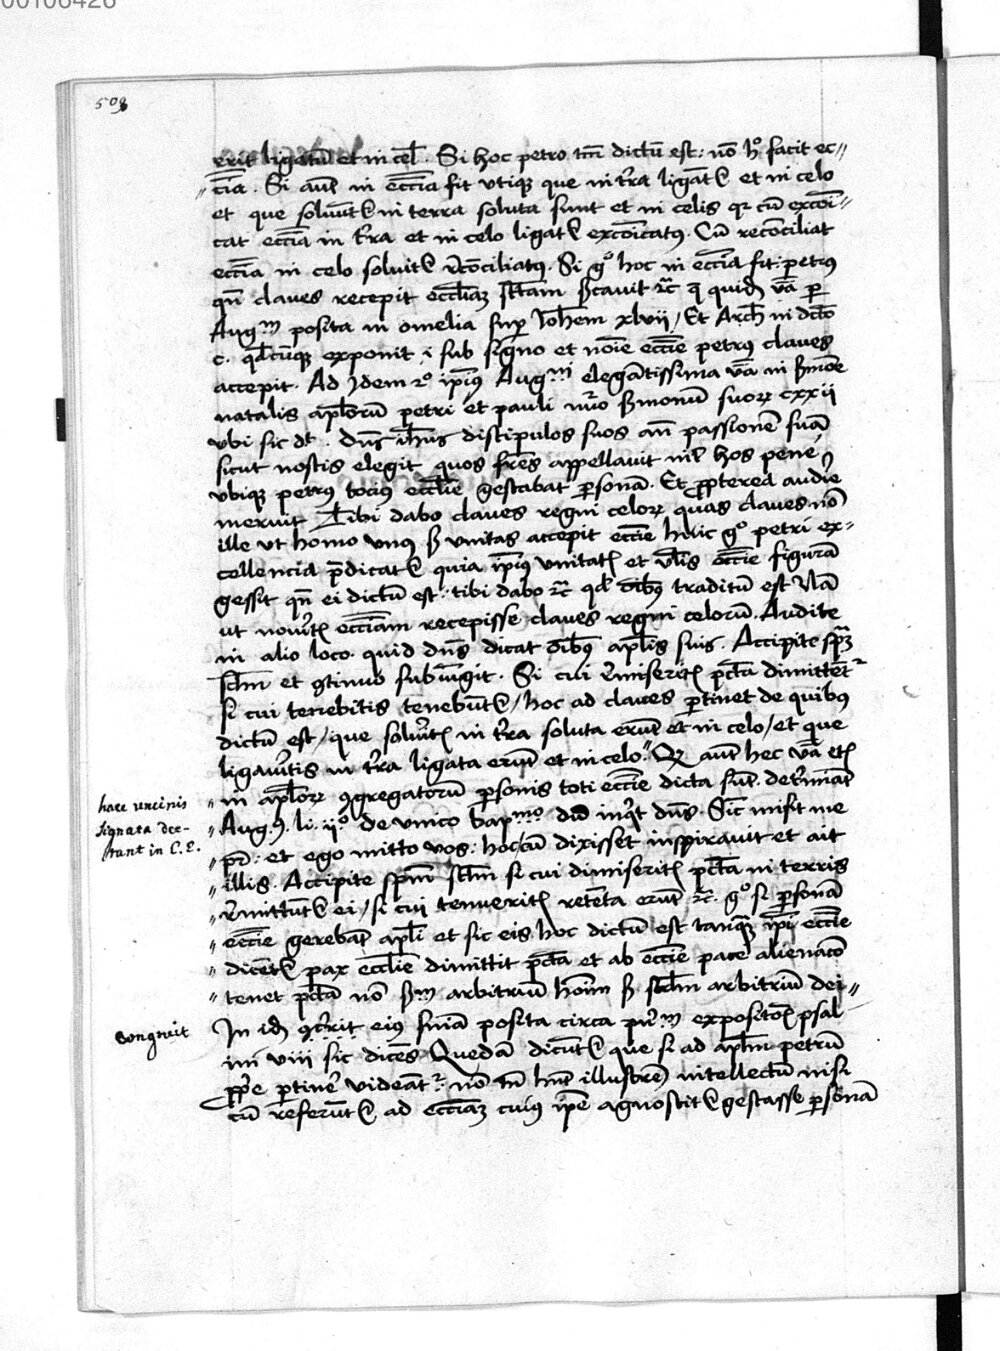 00106426
508
erit ligatū et in cel̄. Si hoc petro tm̄ dictū est: nō hº facit ec〃
〃cīa. Si aut̄ in eccīa fit utiqꝫ que in tr̄a ligant᷑ et in celo
et que soluūt᷑ in terra soluta sunt et in celis qꝛ cū excōi〃
cat eccīa in tr̄a et in celo ligat᷑ excōicatꝰ. Cū recōnciliat
eccīa in celo soluit᷑ rcōnciliatꝰ. Si gº hoc in eccīa fit: petrus
qn̄ claues recepit ecclīaꝫ sctām significauit ꝛc̄ quid vba per
Augᵐ posita in omelia sup Ioh̄em xlvii / Et Arch̄ in dcō
c. qd̄cūqꝫ exponit i sub signo et noīe eccīe petrus claues
accepit. Ad idem rº ipiꝰ Augᵐⁱ elegātissima vba in smōe
natalis apl̄orū petri et pauli nūo smonū suoꝝ cxxii
vbi sic dt. Dn̄s ih̄us discipulos suos an̄ passionē suā
sicut nostis elegit quos fr̄es appellauit int̄ hos pene
vbiqꝫ petrus tociꝰ eccl̄ie gestabat ꝑsonā. Et ꝓpterea audire
meruit Tibi dabo claues regni celoꝝ quas claues nō
ille ut homo vnꝰ sꝫ vnitas accepit eccīe hinc gº petri ex〃
cellencia p̄dicat᷑ quia ipiꝰ vnitatꝭ et vl̄is eccīe figurā
gessit qn̄ ei dictū est: tibi dabo ꝛc̄ qd̄ oībꝰ traditū est Nā
ut nouītꝭ eccīam recepisse claues regni celorū. Audite
in alio loco. quid dn̄s dicat oībꝰ apl̄is suis. Accipite sp̄ꝫ
sctm̄ et ꝯtinuo subiūgit. Si cui rmiseritꝭ pctā dimittētᷣ
si cui tenebitis tenebūt᷑ / hoc ad claues ꝑtinet de quibꝰ
dictū est / que soluītꝭ in tr̄a soluta erūt et in celo / et que
ligauītis in tr̄a ligata erūt et in celo. Qꝛ aut̄ hec vba etꝭ
〃 in apl̄oꝝ ꝯgregatorū ꝑsonis toti eccīe dicta sūt. det̄minat
〃 Augꝰ. li. ijº de vnico bapᵐº dīd inqt dn̄s. Sic misit me
〃 pr̄: et ego mitto vos: hoc cū dixisset inspirauit et ait
〃 illis. Accipite spm̄ sctm̄ si cui dimiseritꝭ pctā in terris
〃 rmittūt᷑ ei / si cui tenueritꝭ retēta erūt ꝛc̄. gº si ꝑsonā
〃 eccīe gerebāt apl̄i et sic eis hoc dictū est tanqꝫ ipī eccīe
〃 dicēt᷑ pax eccl̄ie dimittit pctā et ab eccīe pace alienatō
〃 tenet pctā nō sᵐ arbitriū hoīm sꝫ sctm̄ arbitriū dei〃
In idꝫ ꝯcʳrit eiꝰ smīa posita circa prᵐ expositōꝭ psal〃
mi viii sic dicēs Quedā dicūt᷑ que si ad apl̄m petrū
ꝓpe ꝑtinē videātᷣ: nō tn̄ hn̄t illustrē intellectū nisi
cū referūt᷑ ad eccīaꝫ cuiꝰ ipē agnoscit᷑ gestasse ꝑsonā
haec uncinis
signata dee-
rant in C. E.
congruit